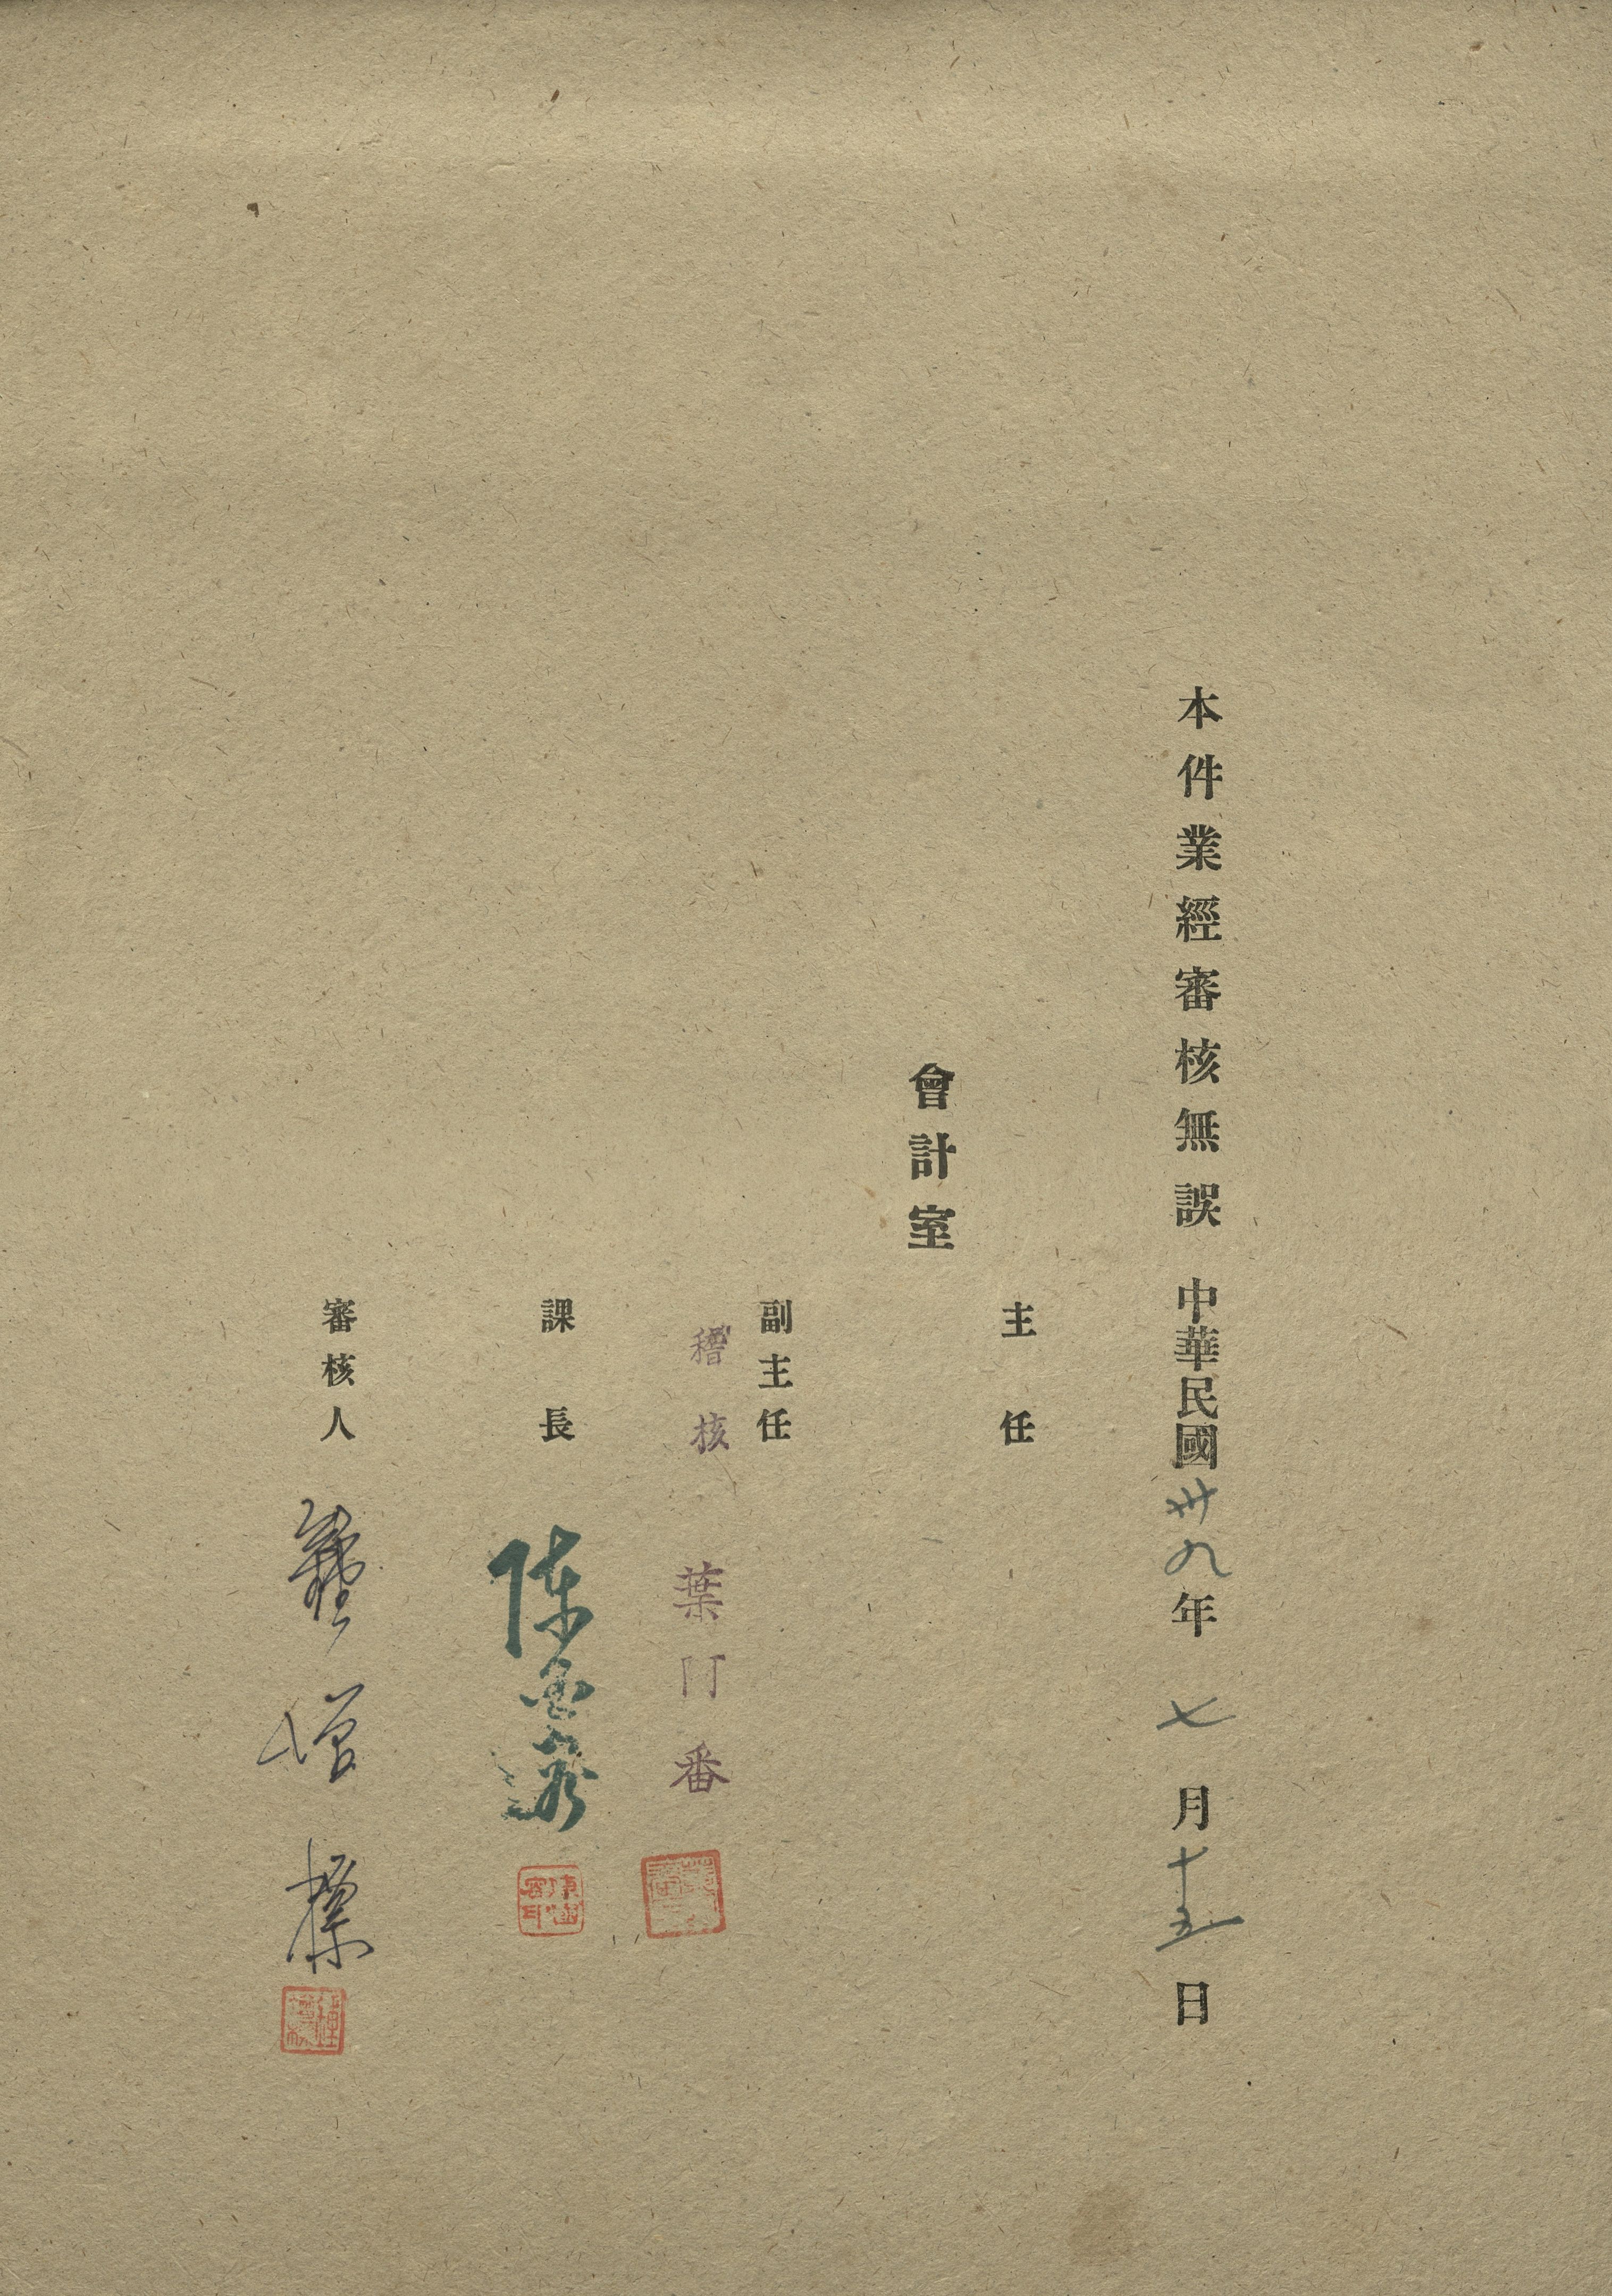 本件業經審核無誤 中華民國卅九年七月十五日
主任
會計室
副主任
稽核 葉 番
課長 陳
審核人 增標